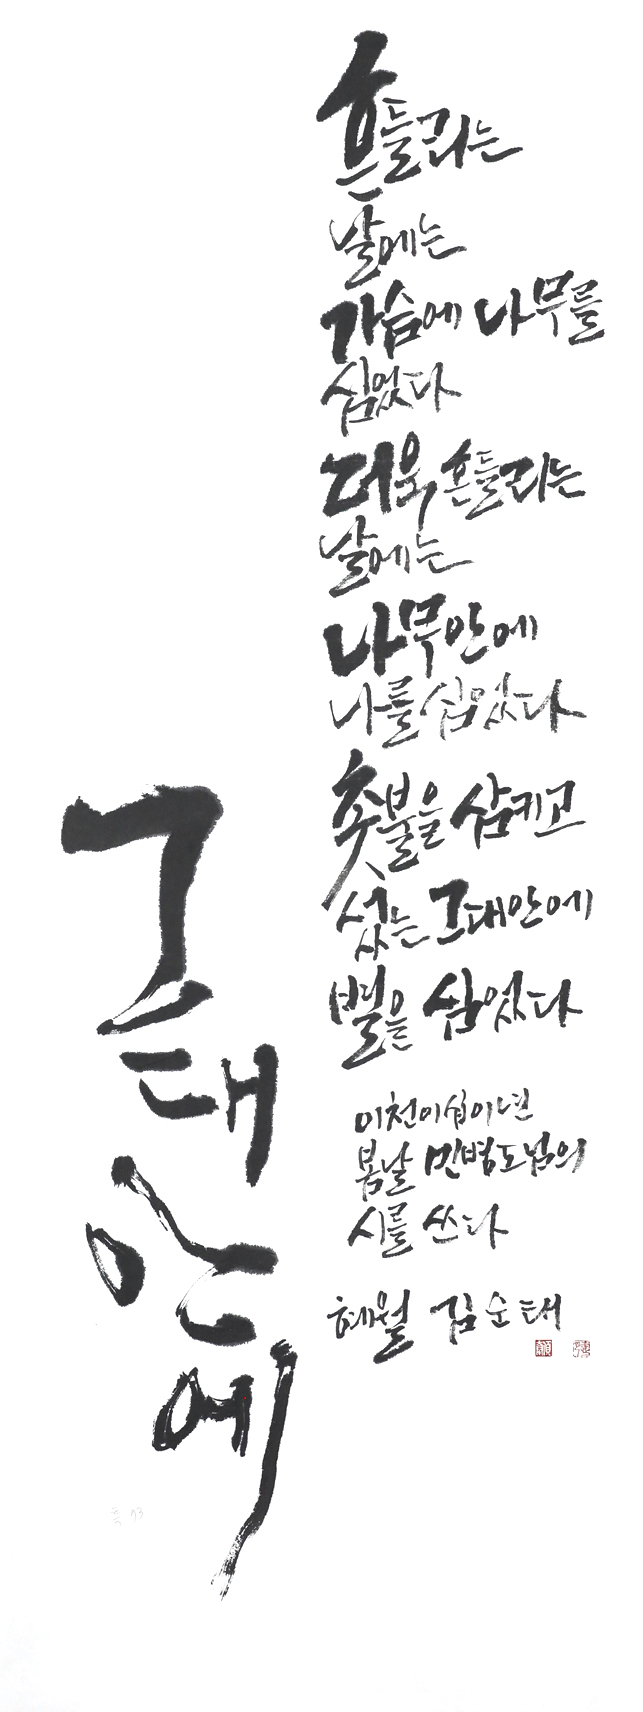 그대안에
흔들리는
날에는
가슴에 나무를
심었다
더욱 흔들리는
날에는
나무안에
나를 심었다
촛불을 삼키고
섰는 그대안에
별을 심었다
이천이십이년
봄날 민병도님의
시를 쓰다
혜월 김순태